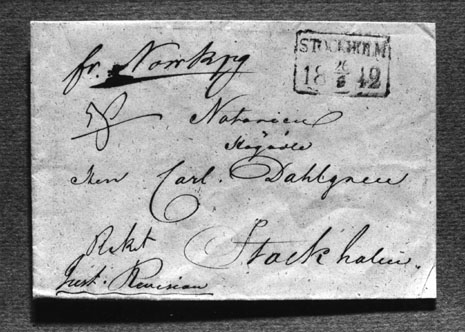 fr. Norrkpg
STOCKHOLM
18 26/6 42
Notarien
Herr Carl. Dahlgren
Stockholm.
Just. Revision